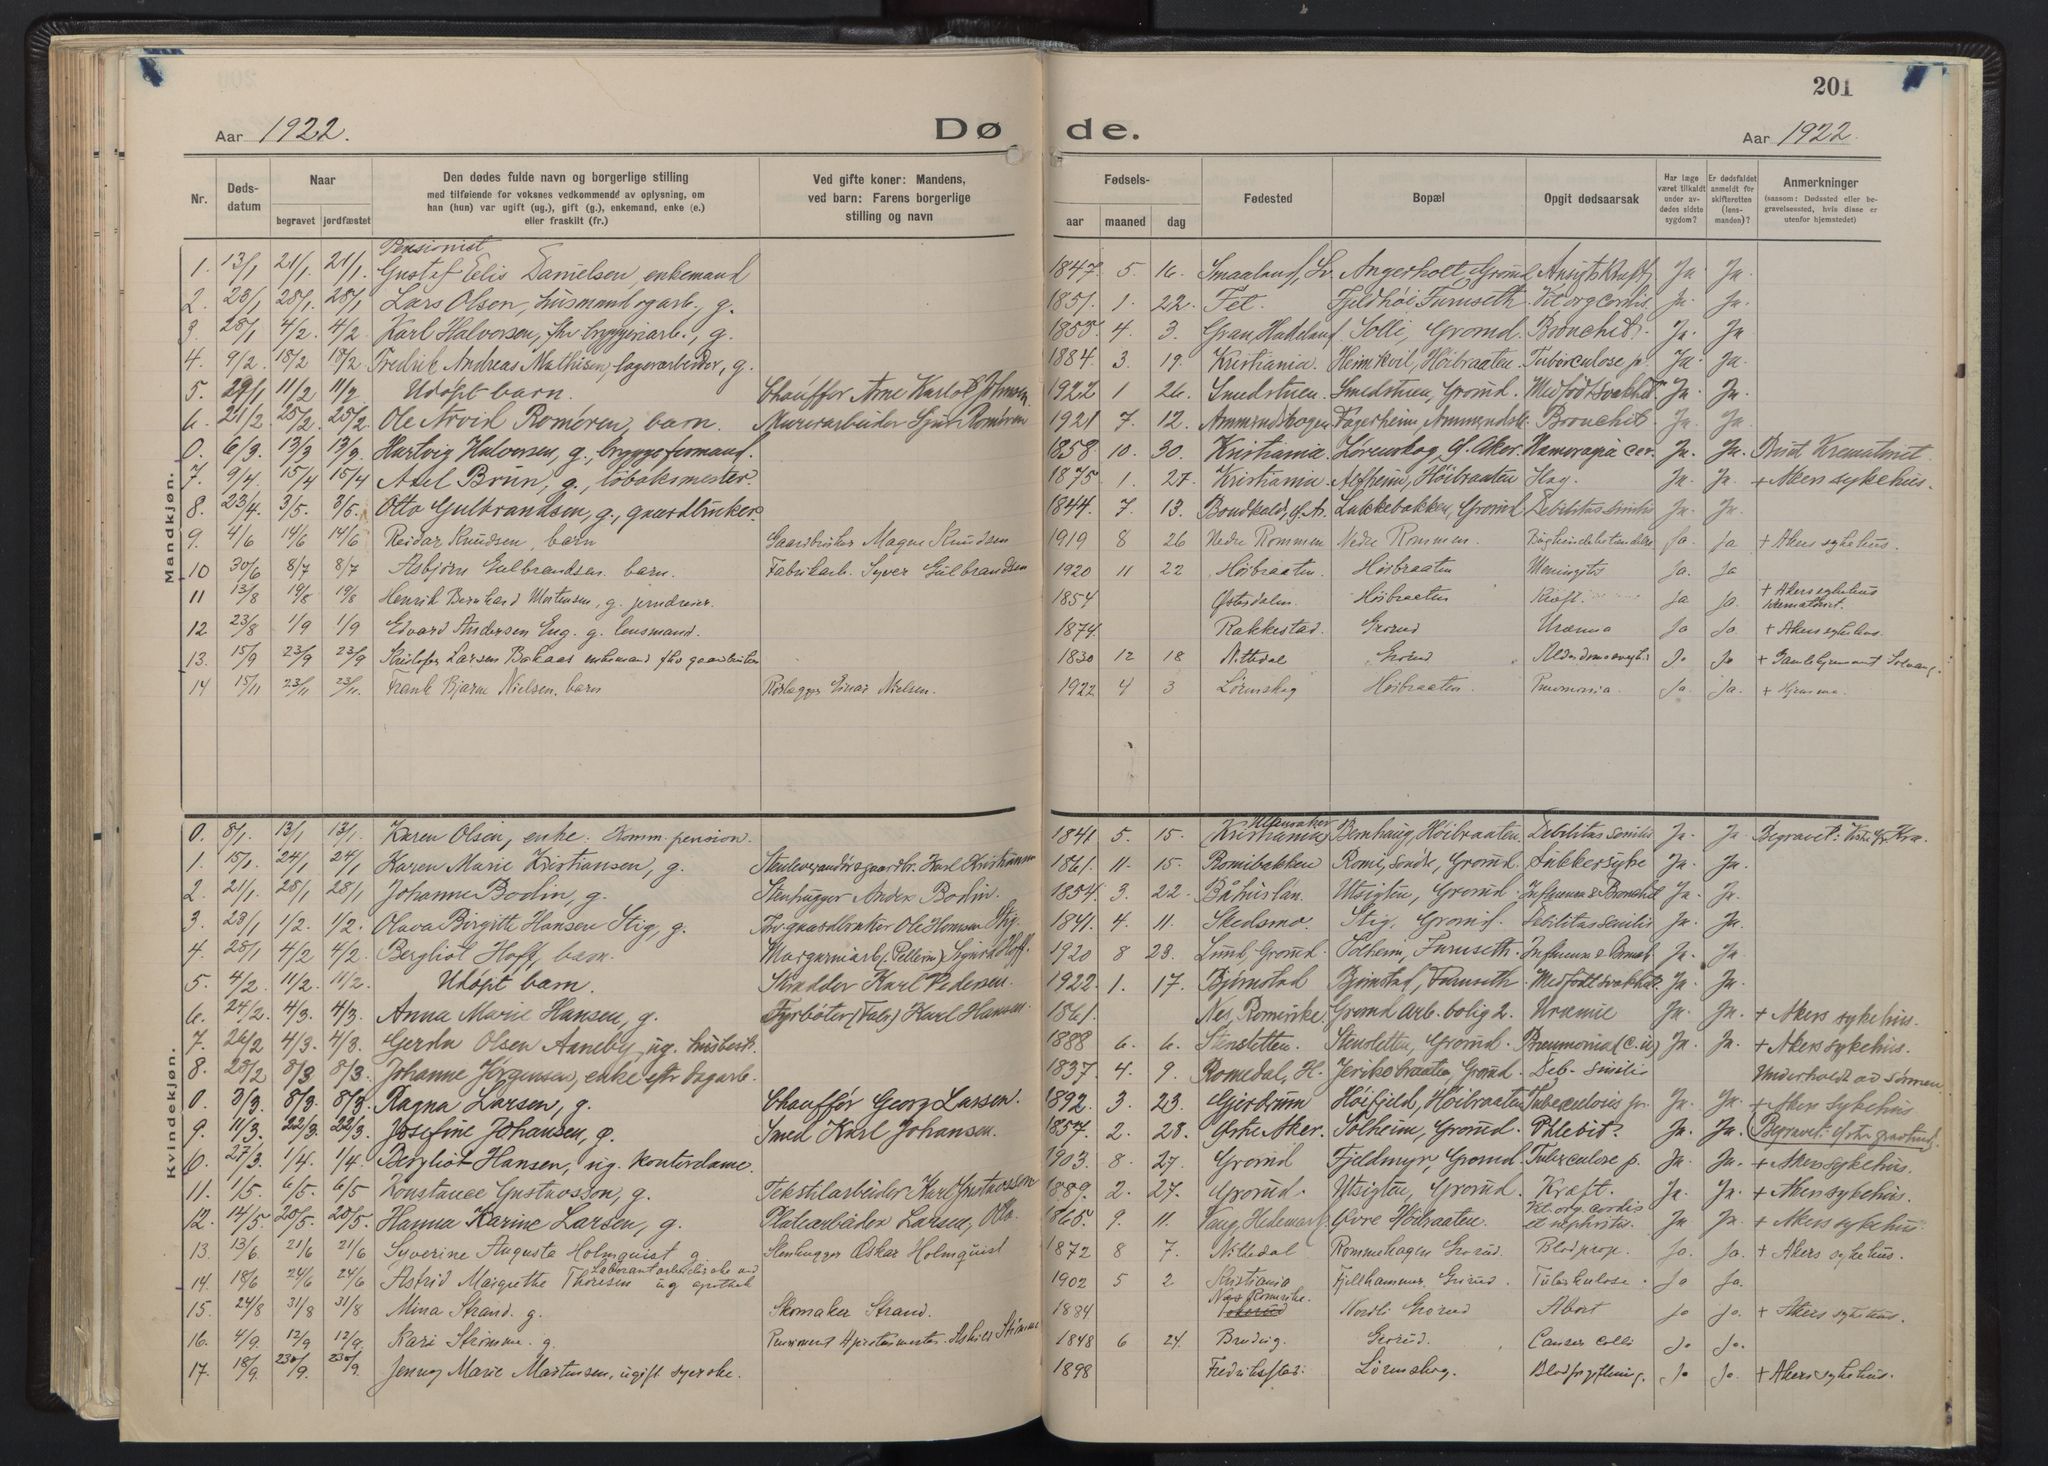 201
Aar 1922. Døde. Aar 1922.
Nr. Døds-datum Naar begravet jordfæstet Den dødes fulde navn og borgerlige stilling med tilføiende for voksnes vedkommende av oplysning, om han (hun) var ugift (ug.), gift (g.), enkemand, enke (e.) eller fraskilt (fr.) Ved gifte koner: Mandens, ved barn: Farens borgerlige stilling og navn Fødsels- aar maaned dag Fødested Bopæl Opgit dødsaarsak Har læge været tilkaldt under av-dødes sidste sygdom? Er dødsfaldet anmeldt for skifteretten (lens-manden)? Anmerkninger (saasom: Dødssted eller be-gravelsessted, hvis disse er utenfor hjemstedet)
Mandkjøn.
Pensionist
1. 13/1 21/1. 21/1. Gustaf Danielsen, enkemand 1847. 5. 16. Smaaland, Sv. Angerholt, Grorud Ansigtskraft. Ja Ja.
2. 23/1 28/1 28/1 Lars Olsen, husmand og arb., g. 1851. 1. 22. Fet. Fjeldhøi Furuseth. Vit. org. cordis Ja. Ja
3. 28/1 4/2. 4/2. Karl Halvorsen, fhv. bryggeriarb., g. 1855. 4. 3. Gran, Hadeland Solli, Grorud. Bronchit. Ja. Ja
4. 9/2 18/2 18/2 Fredrik Andreas Mathisen, lagerarbeider, g. 1884. 3. 19. Kristiania. Heimkvil, Høibraaten. Tuberculose p. Ja. Ja.
5. 29/1 11/2 11/2 Udøpt barn. Chauffør Arne Karlot Johnsen. 1922 1 26. Smedstuen. Smedstuen, Grorud. Medfødt svakhet Ja. Ja.
6. 21/2 25/2. 25/2. Ole Arvid Romøren, barn. Murerarbeider Romøren 1921 7. 12. Fagerheim, Bronchit Ja Ja.
0. 6/3. 13/3 13/3 Hartvig Halvorsen, g., bryggeformand. 1858. 10. 30. Kristiania. Lørenskog, Ø. Aker. Hæmoragia cer. Ja. Ja. Krematoriet.
7. 9/4. 15/4 15/4 Axel Brun, g., tobaksmester. 1875. 1. 27. Kristiania. Alfheim, Høibraaten Ja. Ja. + Akers sykehus.
8. 23/4. 3/5. 3/5. Otto Gulbrandsen, g., gaardbruker. 1844. 7. 13. Lakkebakken, Grorud Debilitas senilis Ja. Ja.
9. 4/6 14/6 14/6 Reidar Knudsen, barn Gaardbruker Magne Knudsen 1919 8 26 Nedre Rommen Nedre Rommen. Ja Ja + Akers sykehus.
10 30/6 8/7 8/7 Asbjørn Gulbrandsen barn. Fabrikarb. Syver Gulbrandsen 1920 11 22 Høibraaten. Høibraaten Meningitis Ja. Ja
11 13/8 19/8 19/8 Henrik Bernhard Mortensen, g. 1854 Østerdalen. Høibraaten Kræft. Ja Ja. + Akers sykehus krematoriet.
12. 23/8 1/9 1/9 Edvard Andersen Eng. g. lensmand. 1874. Rakkestad. Grorud Uræmia Ja Ja. + Akers sykehus.
13. 15/9 23/9 23/9 Kristofer Larsen Bakaas enkemand fhv. gaardbruker 1830 12 18 Nittedal Grorud Ja Ja + Gamlehjemmet Solvang.
14 15/11 23/11 23/11. Frank Bjarne Nielsen. barn Rørlægger Einar Nielsen. 1922 4 3 Lørenskog Høibraaten. Pneumonia. Ja. Ja. + Hjemme.
Kvindekjøn.
0. 8/1. 13/1 13/1. Karen Olsen, enke. Komm. pension. 1841. 5. 15. (Kristiania) Bernhaug, Høibraaten. Debilitas senilis Ja. Ja Begravet:
1. 15/1 24/1 24/1 Karen Marie Kristiansen, g. Stenleverandør og gaardbr. Karl Kristiansen 1861. 11. 15. Romibakken Romi, søndre, Grorud. Sukkersyke Ja. Ja.
2. 21/1. 28/1 28/1 Johanne Bodin, g. Stenhugger Anders Bodin. 1854. 3. 22. Båhuslän. Utsigten, Grorud. Influensa & Bronchit Ja. Ja.
3. 23/1 1/2. 1/2. Olava Birgitte Hansen Stig, g. Fhv. gaardbruker Ole Hansen Stig. 1841. 4. 11. Skedsmo. Stig, Grorud. Debilitas senilis Ja. Ja
4. 28/1 4/2 4/2. Bergliot Hoff, barn. Margarinarb. (Pellerin) Sigurd Hoff. 1920 8 23. Lund, Grorud. Solheim, Furuseth. Ja. Ja.
5. 4/2. 11/2. 11/2. Udøpt barn. Skrædder Karl Pedersen. 1922. 1. 17. Bjørnstad Bjørnstad, Furuseth Medfødt svakhet Ja. Ja.
6. 24/2. 4/3. 4/3. Anna Marie Hansen, g. Fyrbøter (Fabr.) Karl Hansen. 1861. Nes, Romerike. Grorud Arb. bolig 2. Uræmie Ja. Ja. + Akers sykehus.
7. 26/2 4/3. 4/3. Gerda Olsen Aaneby, ug. husbest. 1888 6. 6. Stensletten. Stensletten, Grorud. Pneumonia (c. u) Ja. Ja. + Akers sykehus.
8. 28/2 8/3 8/3. Johanne Jørgensen, enke efter dagarb. 1837. 4. 9. Romedal, H. Jerikobraaten, Grorud. Deb. senilis Underholdt av sønnen
0. 3/3. 8/3. 8/3. Ragna Larsen, g. Chauffør Georg Larsen. 1892. 3. 23. Gjerdrum Høifjeld, Høibraaten Tuberculosis p. Ja. Ja. + Akers sykehus
9. 11/3. 22/3. 22/3. Josefine Johansen, g. Smed Karl Johansen. 1857. 2. 28. Østre Aker. Solheim, Grorud. Phlebit. Ja Ja. (Begravet:
10. 27/3. 1/4. 1/4. Bergliot Hansen, ug. kontordame. 1903. 8. 27. Grorud Fjeldmyr, Grorud. Tuberculose p. Ja. Ja. + Akers sykehus.
11. 1/5. 6/5. 6/5 Konstance Gustavsson, g. Tekstilarbeider Karl Gustavsson 1889. 2. 27. Grorud. Utsigten, Grorud. Kræft. Ja. Ja. + Akers sykehus.
12. 14/5. 20/5. 20/5. Hanna Karine Larsen, g. Platearbeider Larsen, 1865. 9. 11. Vang, Hedemark. Øvre Høibraaten. Vit. org. cordis et nephritis. Ja. Ja. + Akers sykehus.
13. 13/6. 21/6 21/6 Syverine Augusta Holmquist g. Stenhugger Oskar Holmquist 1872 8 7. Nittedal Rommehagen Grorud. Blodprop. Ja. Ja. + Akers sykehus.
14. 18/6 24/6 24/6 Astrid Margrethe Thoresen ug Laborantarbeiderske ved apothek 1902 5 2 Kristiania Fjellhammer, Grorud. Tuberkulose. Ja Ja.
15. 24/8 31/8 31/8 Mina Strand. g. Skomaker Strand. 1884 Nes Romerike. Nordli Grorud Abort Ja Ja. + Akers sykehus.
16. 4/9. 12/9 12/9. Kari Strømme. g. Strømme 1848 6 24. Grorud. Cancer colli Ja Ja.
17. 18/9. 23/9. 23/9. Jenny Marie Martensen, ugift syerske. 1898 Fredrikstad. Lørenskog. Blodforgiftning. Ja Ja. + Akers sykehus.